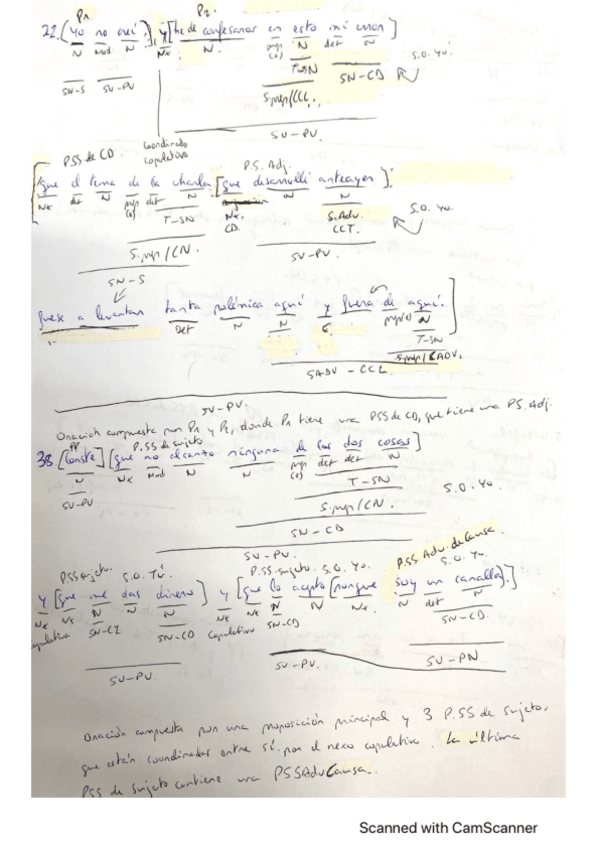 P1 P2
22. (Yo no creí) y [he de confesaros en esto mi error]
N Mod N Nx N prep (e) N det N
T-SN SN-CD S.O. Yo.
SN-S SV-PV
S.prep/CCL.
SV-PV.
PSS de CD. Coordinado copulativo P.S. Adj.
[que el tema de la charla [que desarrollé anteayer]
Nx det N prep (e) det N Nx. N N S.O. Yo.
T-SN CD. S.Adv. CCT.
S.prep/CN. SV-PV.
SN-S
fuese a levantar tanta polémica aquí y fuera de aquí.]
Det N N prep(e) N
T-SN
S.prep/CADV.
SADV-CCL
SV-PV.
Oración compuesta por P1 y P2, donde P1 tiene una PSS de CD, que tiene una PS. Adj.
PP P.SS de sujeto
38. [Conste] [que no alcanto ninguna de las dos cosas]
N Nx Mod N N prep (e) det det N
SV-PV T-SN S.O. Yo.
S.prep/CN.
SN-CD
SV-PV.
PSS sujeto. S.O. Tú. P.SS-sujeto. S.O. Yo. P.SS. Adv. de Causa.
S.O. Yo.
y [que me das dinero] y [que lo acepto [porque soy un canalla).]
Nx Nx N N N Nx Nx N N Nx N det N
copulativa SN-CI SN-CD Copulativo SN-CD SN-CD.
SV-PV. SV-PV. SV-PN
Oración compuesta por una proposición principal y 3 P.SS de sujeto,
que están coordinadas entre sí por el nexo copulativo. La última
PSS de sujeto contiene una PSSAdvCausa.
Scanned with CamScanner